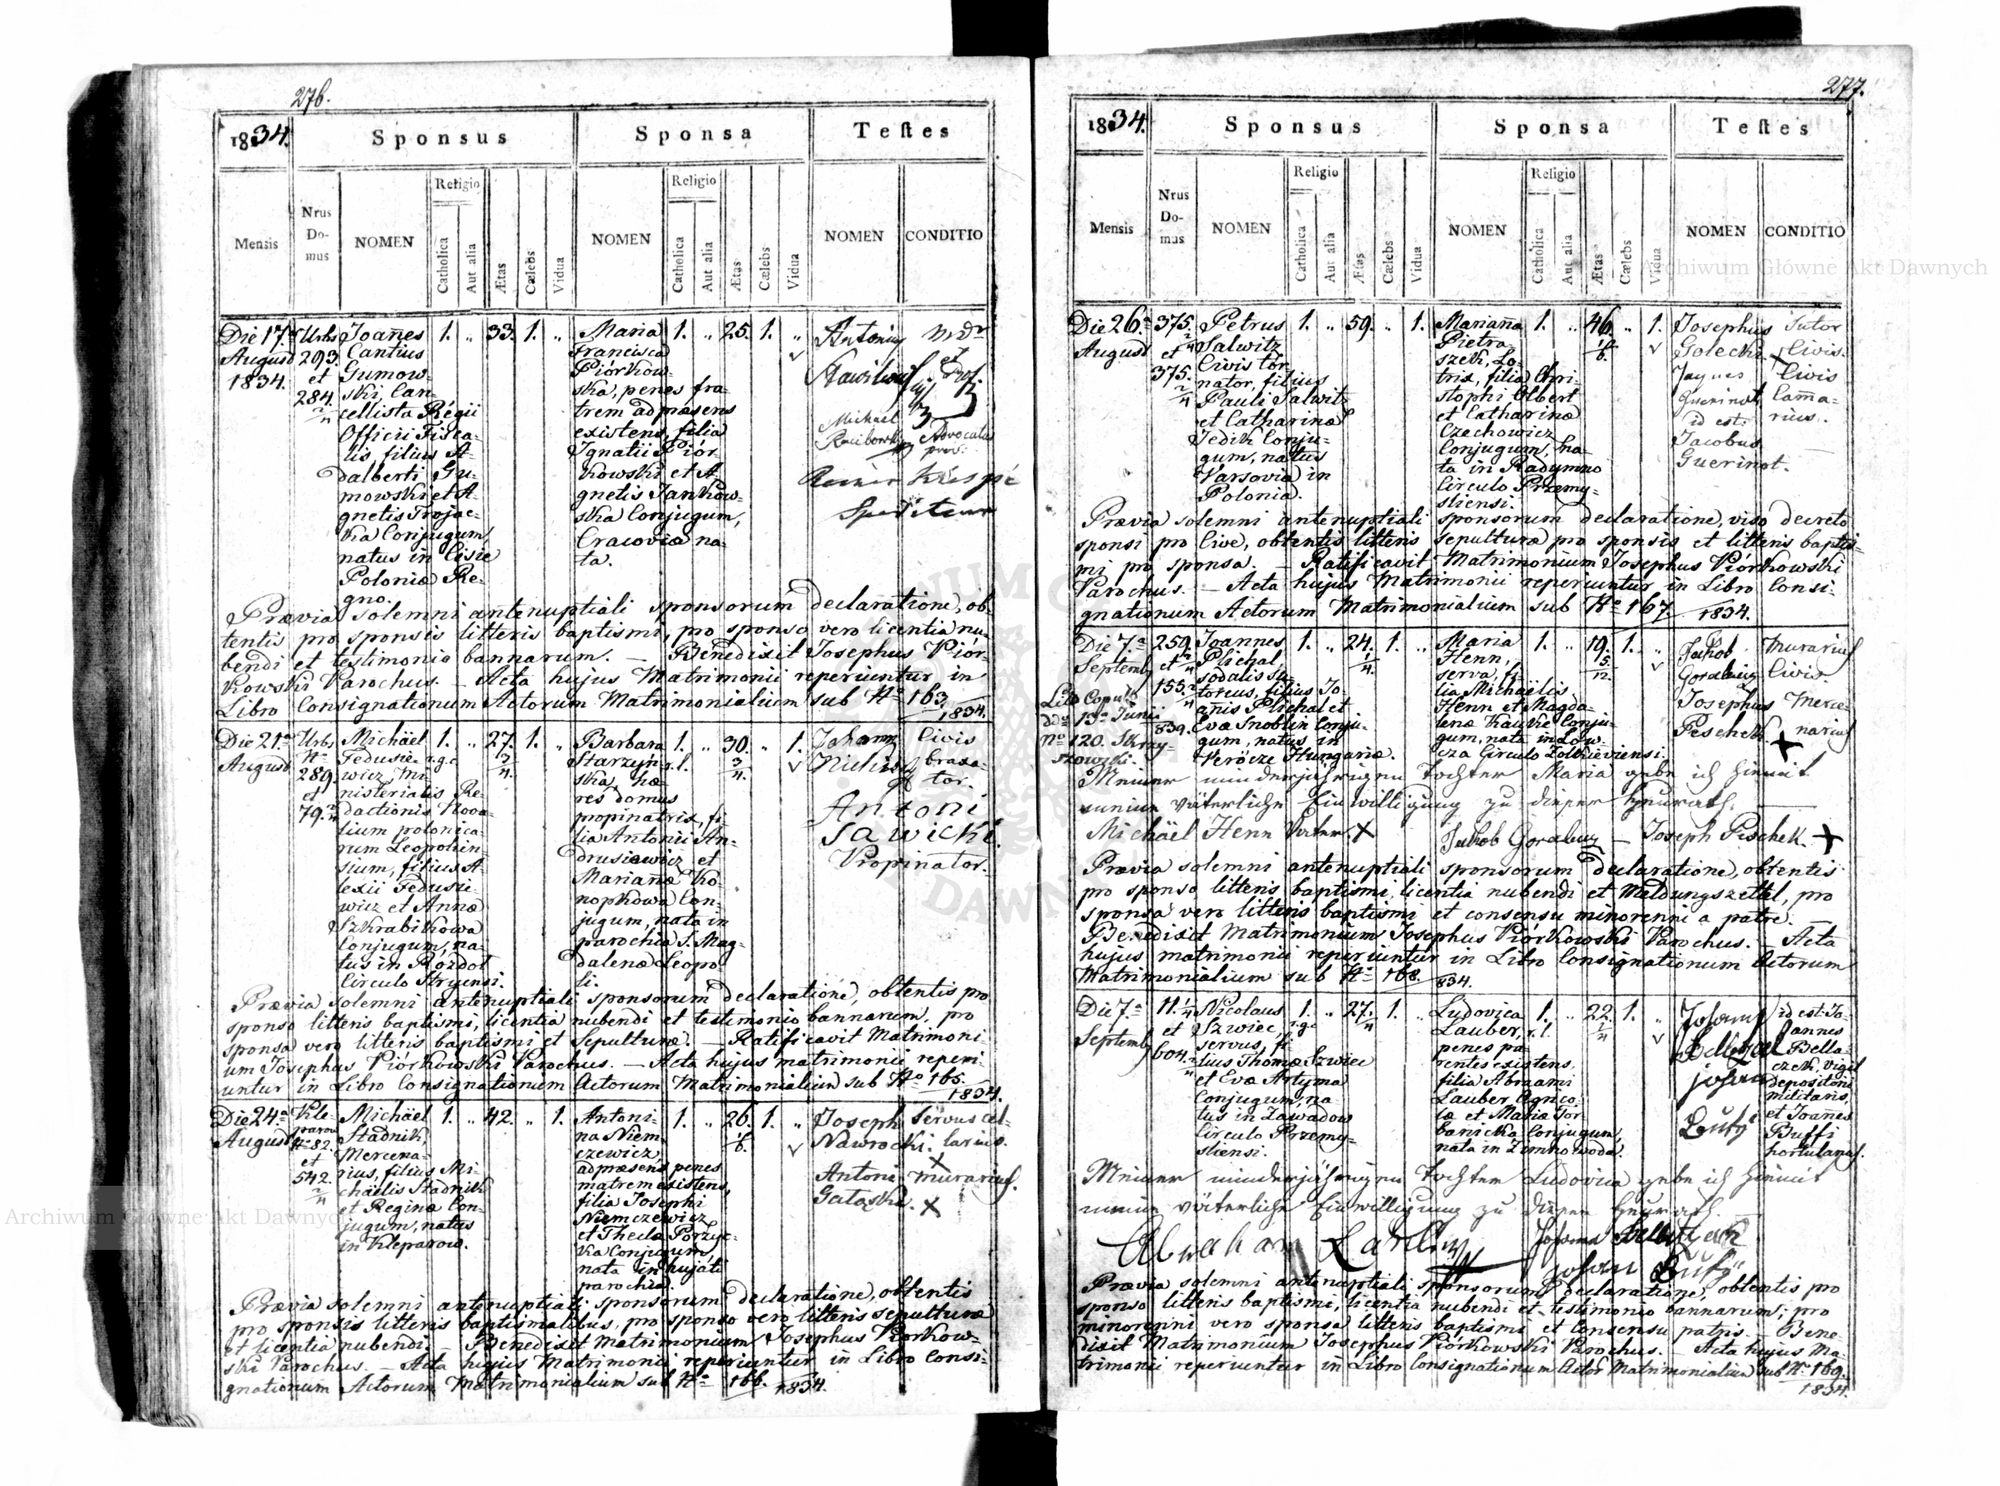 276.
1834.
Sponsus
Sponsa
Teſtes
Mensis
Nrus Do- mus
NOMEN
Religio
Catholica
Aut alia
Ætas
Cælebs
Vidua
NOMEN
Religio
Catholica
Aut alia
Ætas
Cælebs
Vidua
NOMEN
CONDITIO
Die 17a
August
1834.
Urbs
293
et
284.
2/4
Joannes
Cantius
Gumow-
ski, Can-
cellista Regii
Officii Fisca-
lis filius A-
dalberti Gu-
mowski et A-
gnetis Trojac-
ka Conjugum,
natus in
Poloniæ Re-
gno.
1. „ 33. 1. „
Maria
Francisca
Piórkow-
ska, penes fra-
trem ad præsens
existens, filia
Ignatii Piór-
kowski et A-
gnetis Jankow-
ska Conjugum,
Cracoviæ na-
ta.
1. „ 25. 1. „
Antonius
Michael
Raciborski Advocatus
prov.
Spediteur
Prævia solemni antenuptiali sponsorum declaratione, ob-
tentis pro sponsis litteris baptismi, pro sponso vero licentia nu-
bendi et testimonio bannarum. — Benedixit Josephus Piór-
kowski Parochus. — Acta hujus Matrimonii reperiuntur in
Libro Consignationum Actorum Matrimonialium sub No 163.
1834.
Die 21a
August
Urbs
No
289
et
79. 2/4
Michäel
Fedusie-
wicz, Mi-
nisterialis Re-
dactionis Nova-
lium polonica-
rum Leopolien-
sium, filius A-
lexii Fedusie-
wicz et Annæ
Szkrabikowa
Conjugum, na-
tus in Rozdol
Circulo Stryensi.
1. r.g.c. „ 27. 3/4 1. „
Barbara
Starzyń-
ska hæ-
res domus
propinatrix, fi-
lia Antonii An-
drusiewicz et
Mariannæ Ko-
nopkowa Con-
jugum, nata in
parochia S. Mag-
dalenæ Leopo-
li.
1. r.l. „ 30. 3/4 „ 1.
Johann
Civis
braxa-
tor.
Antoni
Sawicki.
Propinator.
Prævia solemni antenuptiali sponsorum declaratione, obtentis pro
sponso litteris baptismi, licentia nubendi et testimonio bannarum, pro
sponsa vero litteris baptismi et Sepulturæ. — Ratificavit Matrimoni-
um Josephus Piórkowski Parochus. — Acta hujus matrimonii reperi-
untur in Libro Consignationum Actorum Matrimonialium sub No 165.
1834.
Die 24a
August
Kle-
parow
No 82.
et
542.
2/4
Michäel
Stadnik,
Mercena-
rius, filius Mi-
chäelis Stadnik
et Reginæ Con-
jugum, natus
in Kleparow.
1. „ 42. „ 1.
Antoni-
na Niem-
czewicz,
ad præsens penes
matrem existens,
filia Josephi
Niemczewicz
et Theclæ Porzyc-
ka Conjugum,
nata in hujati
parochia.
1. „ 26. 1. „
Joseph
Nawrocki.
Servus cel-
larius.
Antoni
Gataska.
murarius.
Prævia solemni antenuptiali sponsorum declaratione, obtentis
pro sponsis litteris baptismalibus, pro sponso vero litteris sepulturæ
et licentia nubendi. — Benedixit Matrimonium Josephus Piórkow-
ski Parochus. — Acta hujus Matrimonii reperiuntur in Libro Consi-
gnationum Actorum Matrimonialium sub No 166. 1834.
277.
1834.
Sponsus
Sponsa
Teſtes
Mensis
Nrus Do- mus
NOMEN
Religio
Catholica
Aut alia
Ætas
Cælebs
Vidua
NOMEN
Religio
Catholica
Aut alia
Ætas
Cælebs
Vidua
NOMEN
CONDITIO
Die 26a
August
375.
2/4
et
375.
2/4
Petrus
Salwitz
Civis tor-
nator, filius
Pauli Salwitz
et Catharinæ
Jedik Conju-
gum, natus
Varsoviæ in
Polonia.
1. „ 59. „ 1.
Marianna
Pietra-
szek, Lo-
trix, filia Chri-
stophi Olbert
et Catharinæ
Czechowicz
Conjugum, na-
ta in Radymno
Circulo Przemy-
sliensi.
1. „ 46. „ 1.
Josephus
Golecki
Sutor
Civis.
Jaques
Guerinot,
id est:
Jacobus
Guerinot.
Civis
Cama-
rius.
Prævia solemni antenuptiali sponsorum declaratione, viso decreto
sponsi pro Cive, obtentis litteris sepulturæ pro sponsis et litteris baptis-
mi pro sponsa. — Ratificavit Matrimonium Josephus Piórkowski
Parochus. — Acta hujus Matrimonii reperiuntur in Libro Consi-
gnationum Actorum Matrimonialium sub No 167. 1834.
Die 7a
Septemb
259.
2/4
et
155.
839.
Joannes
Plichal,
sodalis su-
torius, filius Jo-
annis Plichal et
Evæ Snoblin Conju-
gum, natus in
Hungariæ.
1. „ 24. 1. „
Maria
Henn,
serva, fi-
lia Michäelis
Henn et Magda-
lenæ Kauke Conju-
gum, nata in Low-
cza Circulo Zolkieviensi.
1. „ 19. 5/12. 1. „
Jakob
murarius
Civis.
Josephus
Peschek
merce-
narius
Meiner minderjährigen Tochter Maria gebe ich hiemit
meine väterliche Einwilligung zu dieser Heurath.
Michäel Henn Vater. X
Joseph Peschek X
Prævia solemni antenuptiali sponsorum declaratione, obtentis
pro sponso litteris baptismi, licentia nubendi et Meldungszettel, pro
sponsa vero litteris baptismi et consensu minorenni a patre.
Benedixit Matrimonium Josephus Piórkowski Parochus. — Acta
hujus matrimonii reperiuntur in Libro Consignationum Actorum
Matrimonialium sub No 168. 834.
Die 7a
Septemb
11. 1/4
et
604.
Nicolaus
Szwiec,
servus, fi-
lius Thomæ Szwiec
et Evæ Artyma
Conjugum, na-
tus in Zawadow
Circulo Przemy-
sliensi.
1. r.g.c. „ 27. 1. „
Ludovica
Lauber,
penes pa-
rentes existens,
filia Abraami
Lauber, Agrico-
læ et Mariæ Tor-
banicka Conjugum,
nata in Zimno woda.
1. r.l. „ 22. 1/4 1. „
Johann
id est: Jo-
annes
Bella-
czek, vigil
depositorii
militaris,
et Joannes
Buffi
hortulanus.
Meiner minderjährigen Tochter Ludovica gebe ich hiemit
meine väterliche Einwilligung zu dieser Heurath.
Abraham
Johann
Prævia solemni antenuptiali sponsorum declaratione, obtentis pro
sponso litteris baptismi, licentia nubendi et testimonio bannarum; pro
minorenni vero sponsa litteris baptismi et Consensu patris. — Bene-
dixit Matrimonium Josephus Piórkowski Parochus. — Acta hujus Ma-
trimonii reperiuntur in Libro Consignationum Actor Matrimonialium sub No 169.
1834.
Archiwum Główne Akt Dawnych
Archiwum Główne Akt Dawnych